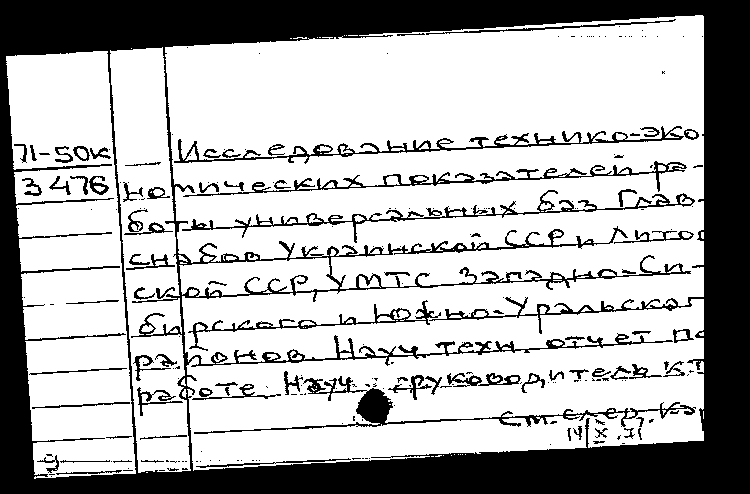 71-50к Исследование технико-эко-
3476 номических показателей ра-
боты универсальных баз Глав-
снабов Украинской ССР и Литов
ской ССР, УМТС Западно-Си-
бирского и Южно-Уральског
районов. Науч. техн. отчет по
работе. Науч. руководитель к.т
См. след. кар
14/X.71
9